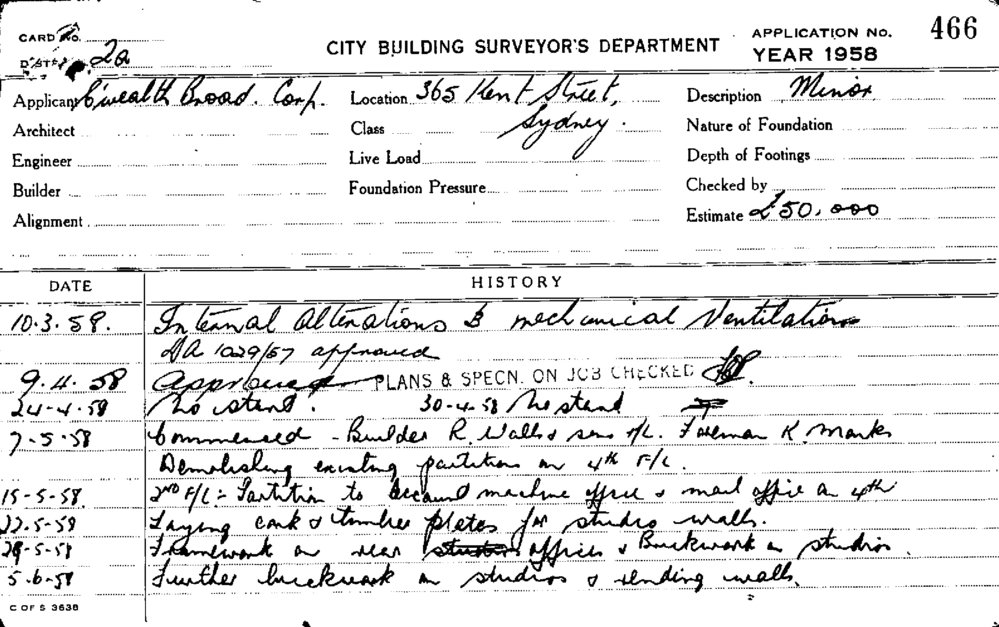 CARD No.
2a
CITY BUILDING SURVEYOR'S DEPARTMENT
APPLICATION No. 466
YEAR 1958
Applicant C'wealth Broad. Corp.
Location 365 Kent Street,
Sydney.
Description Minor
Architect
Class
Nature of Foundation
Engineer
Live Load
Depth of Footings
Builder
Foundation Pressure
Checked by
Alignment
Estimate £50,000
DATE HISTORY
10.3.58. Internal Alterations & mechanical Ventilation
DA 1029/57 approved
9.4.58 Approved PLANS & SPECN. ON JOB CHECKED
24-4-58 No start. 30-4-58 No start
7-5-58 Commenced - Builder R. Wall & sons P/L. Foreman K. Marks
Demolishing existing partitions on 4th F/L.
15-5-58. 2ND F/L:- Partition to account machine office & mail office on 4th
22.5-58 Laying cork & timber plates for studio walls.
29-5-58 Framework on rear offices & Brickwork on studios.
5-6-58 Further brickwork on studios & rending walls.
C OF S 3638